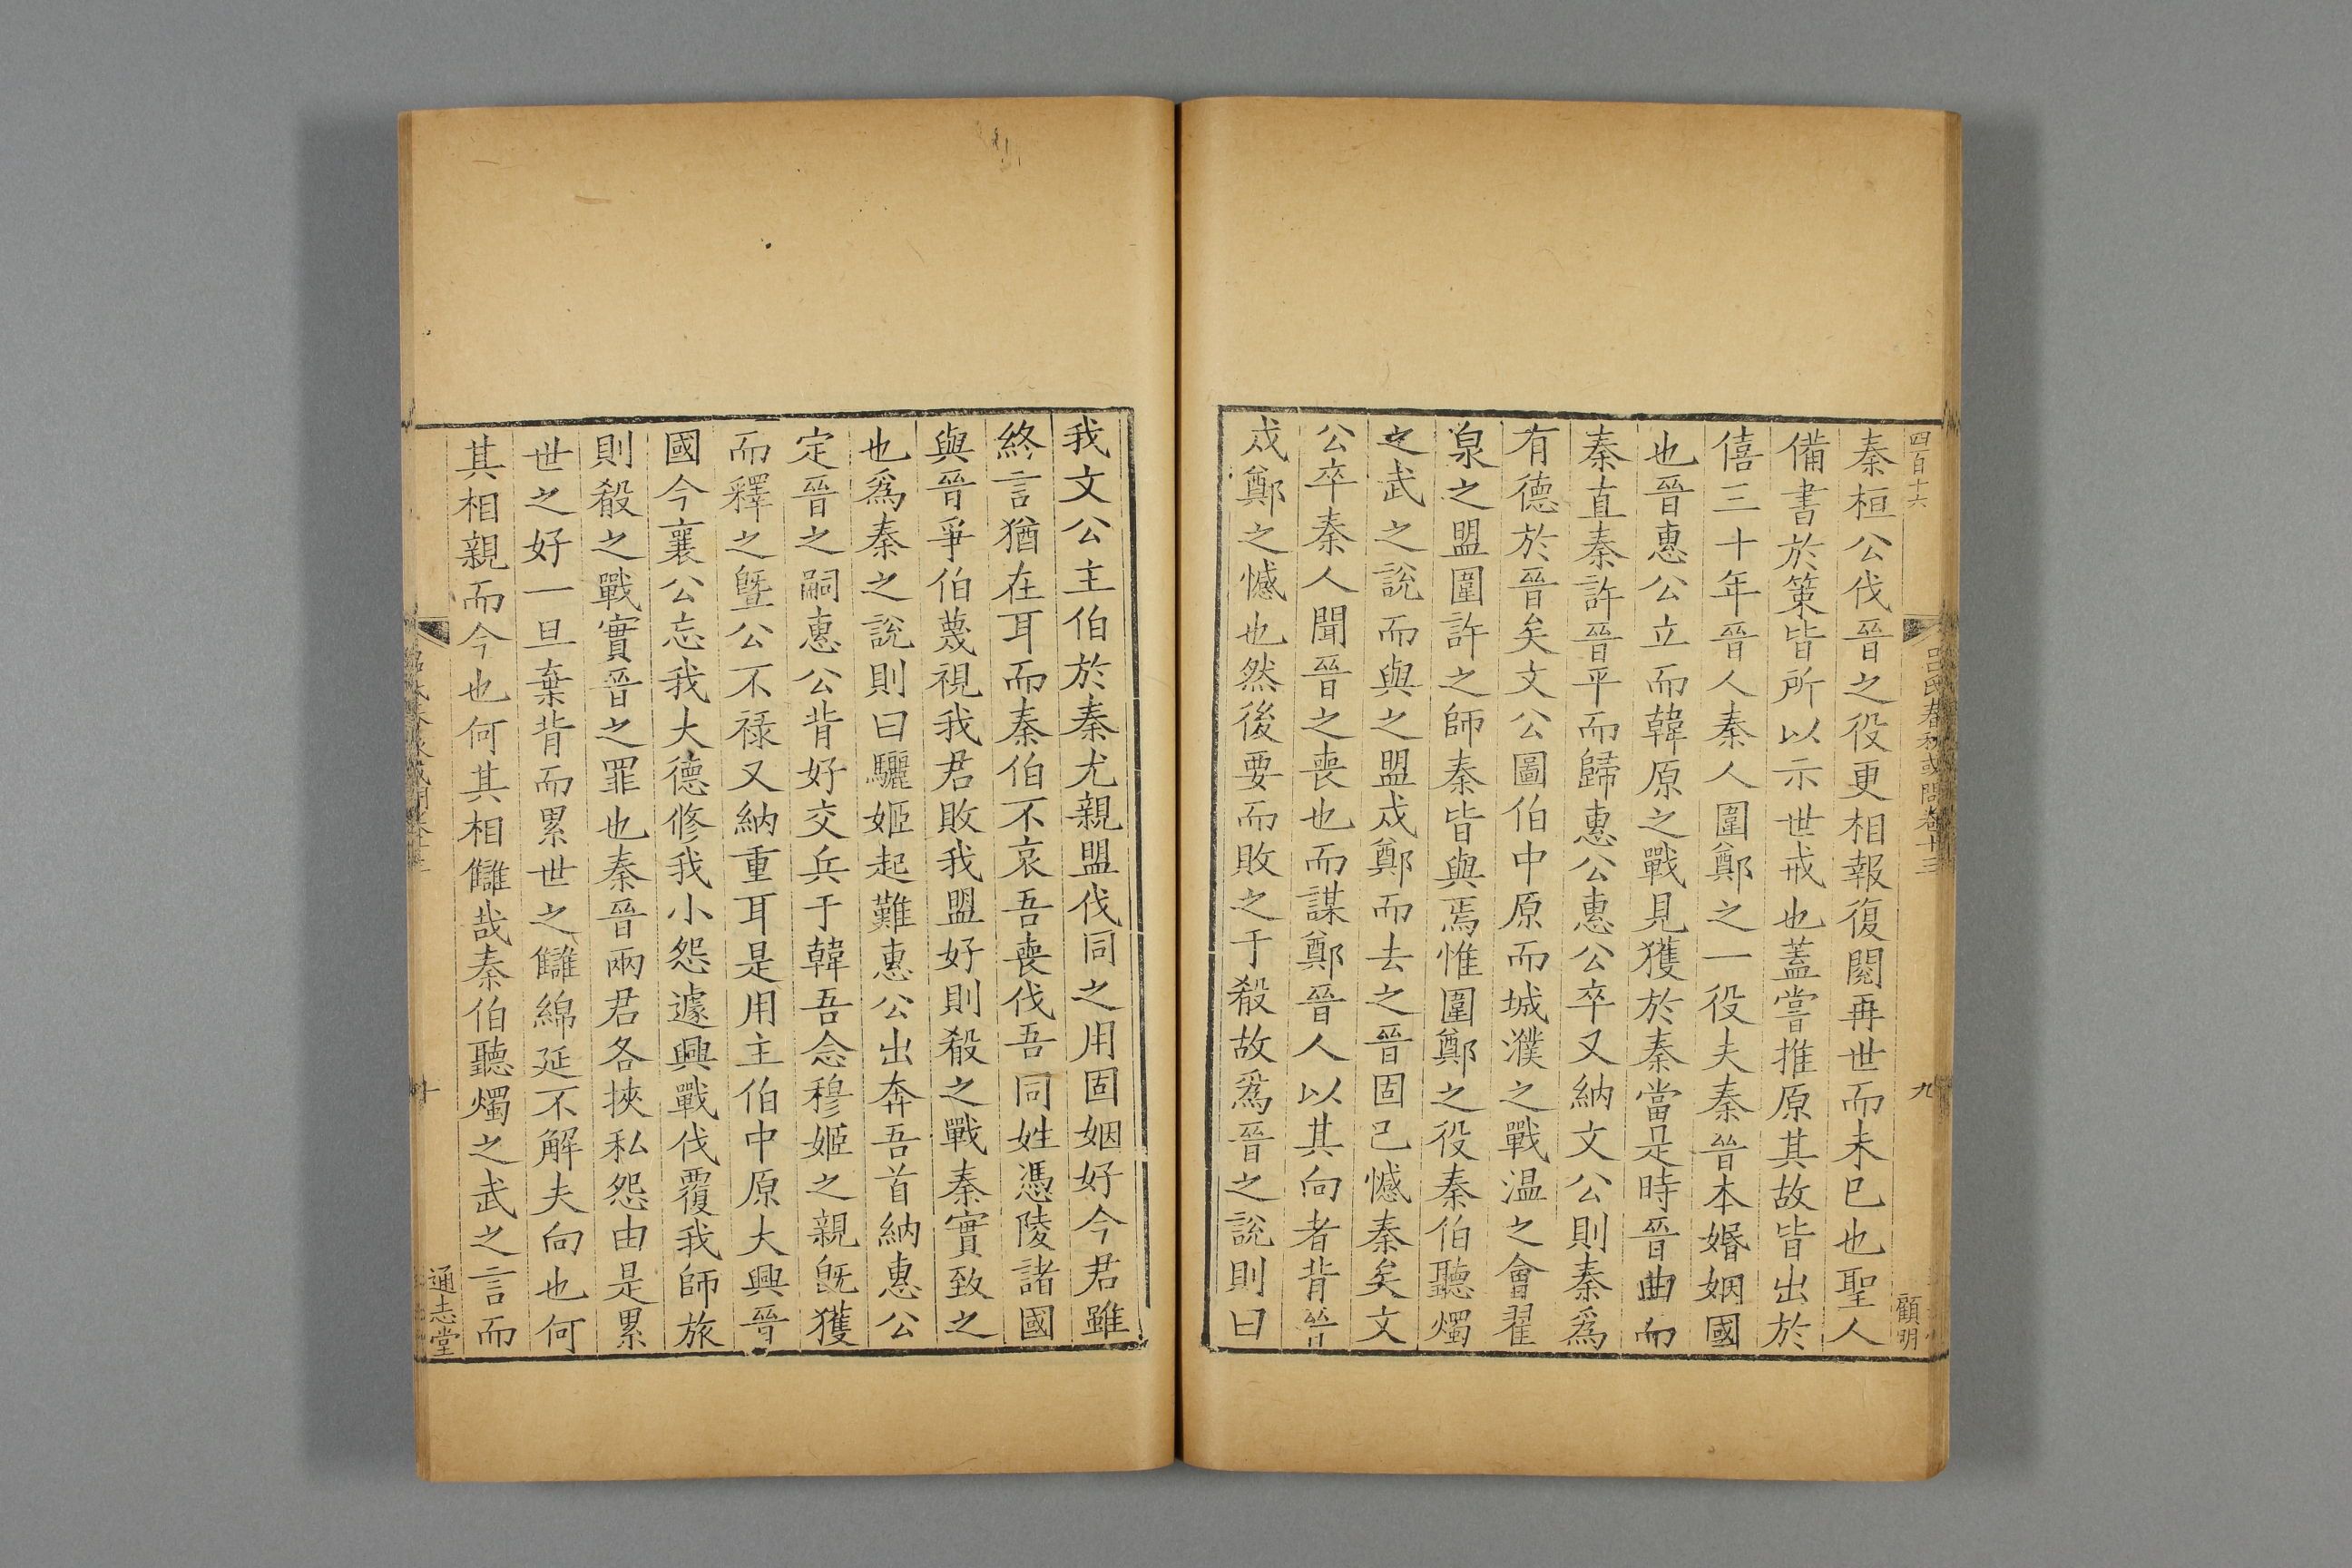 四百十六
呂氏春秋或問卷十三
九
顧明
秦桓公伐晉之役更相報復閱再世而未已也聖人
備書於策皆所以示世戒也蓋嘗推原其故皆出於
僖三十年晉人秦人圍鄭之一役夫秦晉本婚姻國
也晉惠公立而韓原之戰見獲於秦當是時晉曲而
秦直秦許晉平而歸惠公惠公卒又納文公則秦爲
有德於晉矣文公圖伯中原而城濮之戰温之會翟
泉之盟圍許之師秦皆與焉惟圍鄭之役秦伯聽燭
之武之說而與之盟戍鄭而去之晉固已憾秦矣文
公卒秦人聞晉之喪也而謀鄭晉人以其向者背晉
戍鄭之憾也然後要而敗之于殽故爲晉之說則曰
我文公主伯於秦尤親盟伐同之用固姻好今君雖
終言猶在耳而秦伯不哀吾喪伐吾同姓憑陵諸國
與晉爭伯蔑視我君敗我盟好則殽之戰秦實致之
也爲秦之說則曰驪姬起難惠公出奔吾首納惠公
定晉之嗣惠公背好交兵于韓吾念穆姬之親旣獲
而釋之曁公不禄又納重耳是用主伯中原大興晉
國今襄公忘我大德修我小怨遽興戰伐覆我師旅
則殽之戰實晉之罪也秦晉兩君各挾私怨由是累
世之好一旦棄背而累世之讎綿延不解夫向也何
其相親而今也何其相讎哉秦伯聽燭之武之言而
十
通志堂